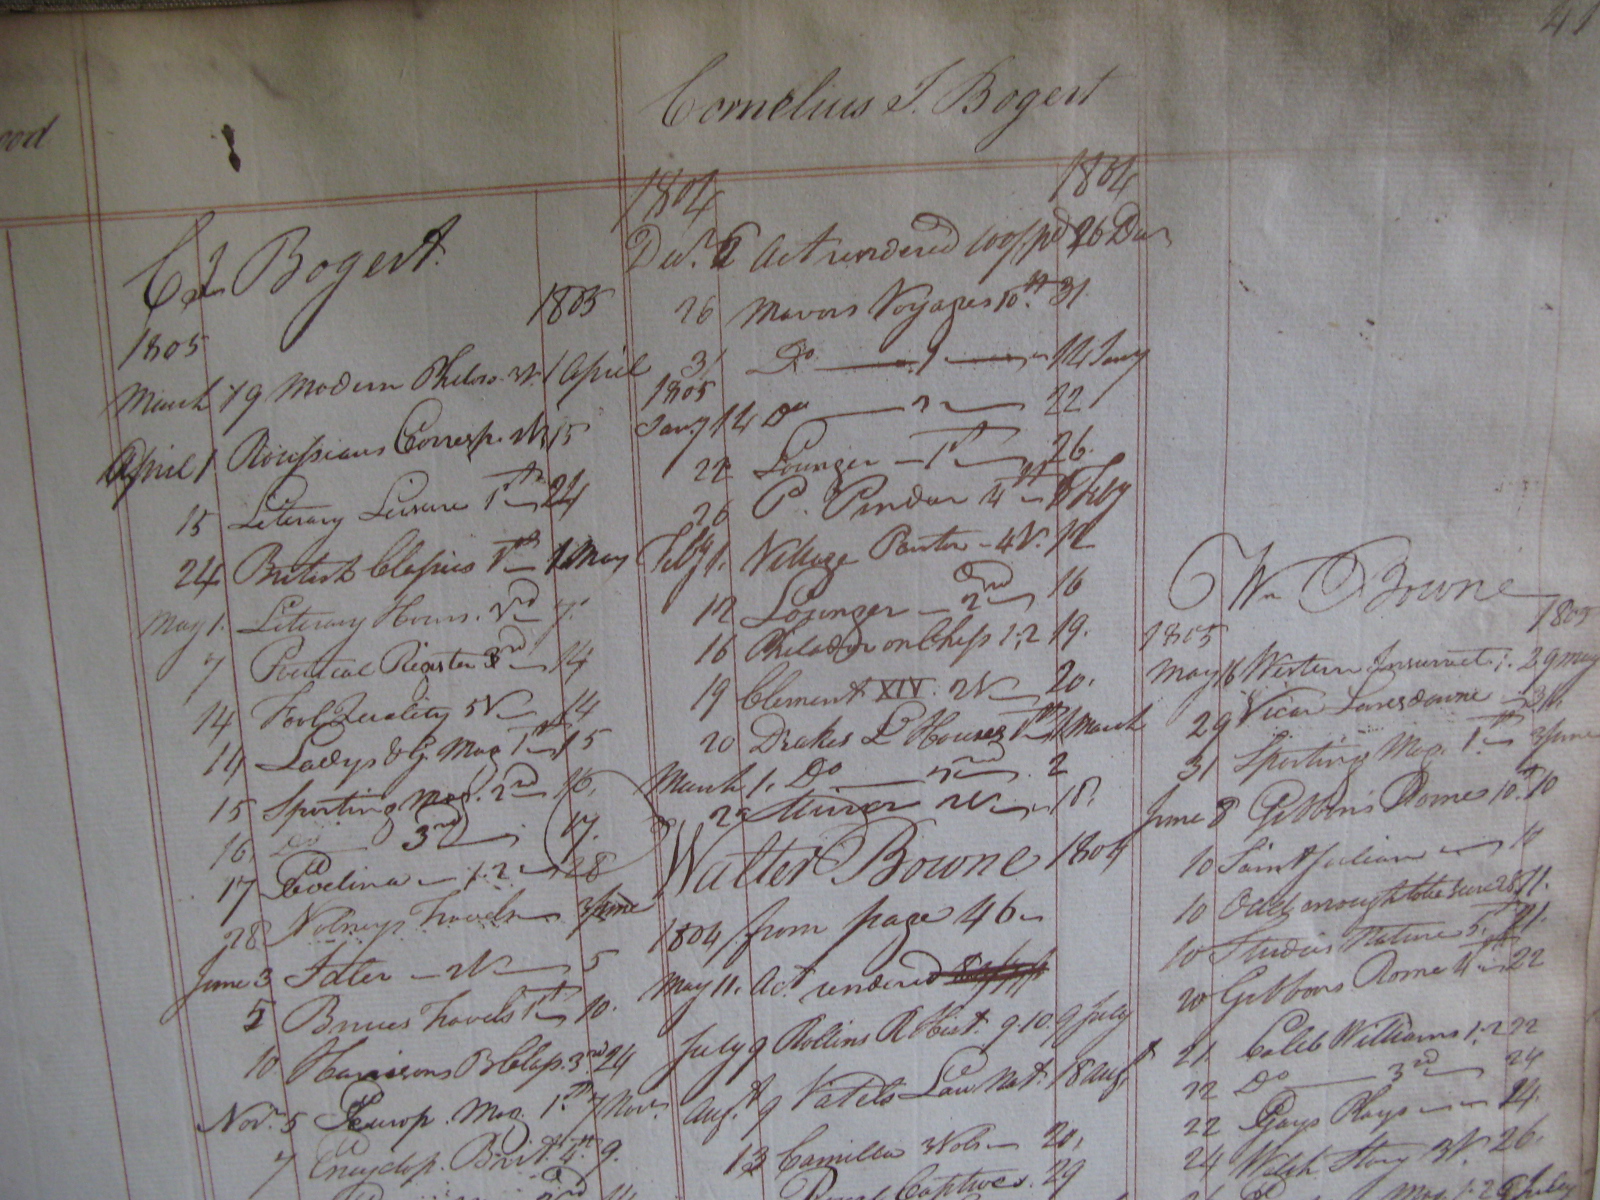 41
ood
Cornelius J. Bogert
C J Bogert
1805 1805
March 19 Modern Philos. 3V. 1 April
April 1 Rousseaus Corresp. 2V 15
15 Literary Leisure 1st 24
24 British Classics 1st 1 May
May 1. Literary Hours. 2nd 7.
7 Poetical Register 3rd 14
14 Fool Quality 5V 14
14 Ladys & G Mag 1st 15
15 Sporting Mag. 2nd 16.
16. Do 3rd 17.
17 Evelina 1.2 28
28 Volneys Travels 3 June
June 3 Idler 2V 5
5 Bruces Travels 1st 10.
10 Harrisons B Class. 3rd 24
Novr. 5 Europ. Mag. 1st 7 Novr.
7 Encyclop. Brit. 4th 9.
1804 1804
Decr. Act rendered pd 26 Decr
26 Mavors Voyages 10th 31
31 Do 1 14 Jany
1805
Jany 14 Do 2 22
22 Lounger 1st 26.
26 P. Pindar 4th Feby
Feby 1. Village Pastor 4V. 12
12 Lounger 2nd 16
16 Philador on Chess 1.2 19.
19 Clement XIV. 2V 20.
20 Drakes L Hours 1st 1 March
March 1. Do 2nd 2
2 Mirror 2V 18.
Walter Bowne 1804
1804 from page 46
May 11. Act rendered
July 9 Rollins R Hist. 9.10. 9 July
Augt 9 Vatels Law Nat. 18 Augt
13 Camilla 3 Vols 20.
Captives. 29
Wm Bowne
1805 1805
May 16 Western Insurrect: 29 May
29 Vicar Lansdowne 31
31 Sporting Mag. 1st 3 June
June 8 Gibbons Rome 10th 10
10 Saint Julian 10
10 Odd enough to be sure 2V 11.
10 Studies Nature 5. 21.
20 Gibbons Rome 4th 22
21 Caleb Williams 1.2 22
22 Do 3rd 24
22 Gays Plays 24.
24 Welch Story 3V. 26.